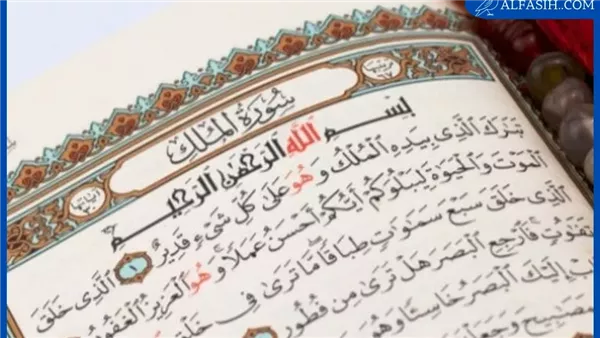 ALFASIH.COM
سُورَةُ المُلْكِ
بِسْمِ اللَّهِ الرَّحْمَٰنِ الرَّحِيمِ
تَبَٰرَكَ ٱلَّذِى بِيَدِهِ ٱلْمُلْكُ وَهُوَ عَلَىٰ كُلِّ شَىْءٍ قَدِيرٌ ١ ٱلَّذِى خَلَقَ
ٱلْمَوْتَ وَٱلْحَيَوٰةَ لِيَبْلُوَكُمْ أَيُّكُمْ أَحْسَنُ عَمَلًا وَهُوَ ٱلْعَزِيزُ ٱلْغَفُورُ
ٱلَّذِى خَلَقَ سَبْعَ سَمَٰوَٰتٍ طِبَاقًا مَّا تَرَىٰ فِى خَلْقِ
تَفَٰوُتٍ فَٱرْجِعِ ٱلْبَصَرَ هَلْ تَرَىٰ مِن فُطُورٍ
إِلَيْكَ ٱلْبَصَرُ خَاسِئًا وَهُوَ